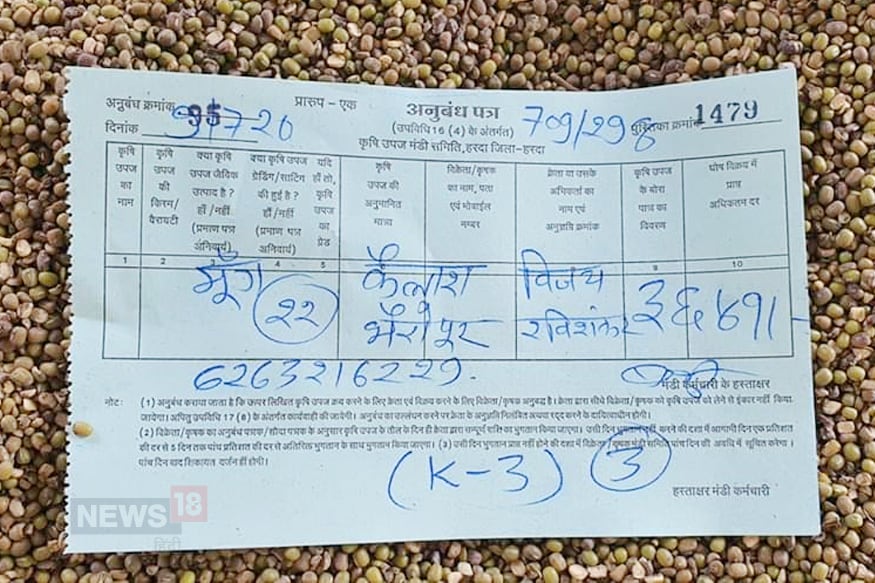 अनुबंध क्रमांक 95 प्रारूप - एक अनुबंध पत्र 709/298 पुस्तिका क्रमांक 1479
दिनांक 9/7 20 (उपविधि 16 (4) के अंतर्गत)
कृषि उपज मंडी समिति, हरदा जिला-हरदा
कृषि उपज का नाम
कृषि उपज की किस्म/ वैरायटी
क्या कृषि उपज जैविक उत्पाद है ? हाँ /नहीं (प्रमाण पत्र अनिवार्य)
क्या कृषि उपज ग्रेडिंग/साटिंग की हुई है ? हाँ /नहीं (प्रमाण पत्र अनिवार्य)
यदि हाँ तो, कृषि उपज का ग्रेड
कृषि उपज की अनुमानित मात्रा
विक्रेता/कृषक का नाम, पता एवं मोबाईल नम्बर
क्रेता या उसके अभिकर्ता का नाम एवं अनुज्ञप्ति क्रमांक
कृषि उपज के बोरा पात्र का विवरण
घोष विक्रय में प्राप्त अधिकतम दर
1 2 3 4 5 9 10
मूँग कैलाश विजय
22 भैरोपुर रविशंकर 3641/-
6263216229.
मंडी कर्मचारी के हस्ताक्षर
नोट: (1) अनुबंध कराया जाता है कि ऊपर लिखित कृषि उपज क्रय करने के लिए क्रेता एवं विक्रय करने के लिए विक्रेता/कृषक अनुबद्ध है। क्रेता द्वारा सीधे विक्रेता/कृषक को कृषि उपज को लेने से इंकार नहीं किया
जायेगा। अपितु उपविधि 17 (6) के अंतर्गत कार्यवाही की जायेगी। अनुबंध का उल्लंघन करने पर क्रेता के अनुज्ञप्ति निलंबित अथवा रद्द करने के दायित्वाधीन होगी।
(2) विक्रेता/कृषक का अनुबंध पत्रक/सौदा पत्रक के अनुसार कृषि उपज के तौल के दिन ही क्रेता द्वारा सम्पूर्ण राशि का भुगतान किया जाएगा। उसी दिन भुगतान नहीं करने की दशा में आगामी दिन एक प्रतिशत
की दर से 5 दिन तक पांच प्रतिशत की दर से अतिरिक्त भुगतान के साथ भुगतान किया जाएगा। (3) उसी दिन भुगतान प्राप्त नहीं होने की दशा में विक्रेता/कृषक मंडी समिति पांच दिन की अवधि में सूचित करेगा।
पांच दिन बाद शिकायत दर्ज नहीं होगी।
(K-3) 3
हस्ताक्षर मंडी कर्मचारी
NEWS 18
हिंदी